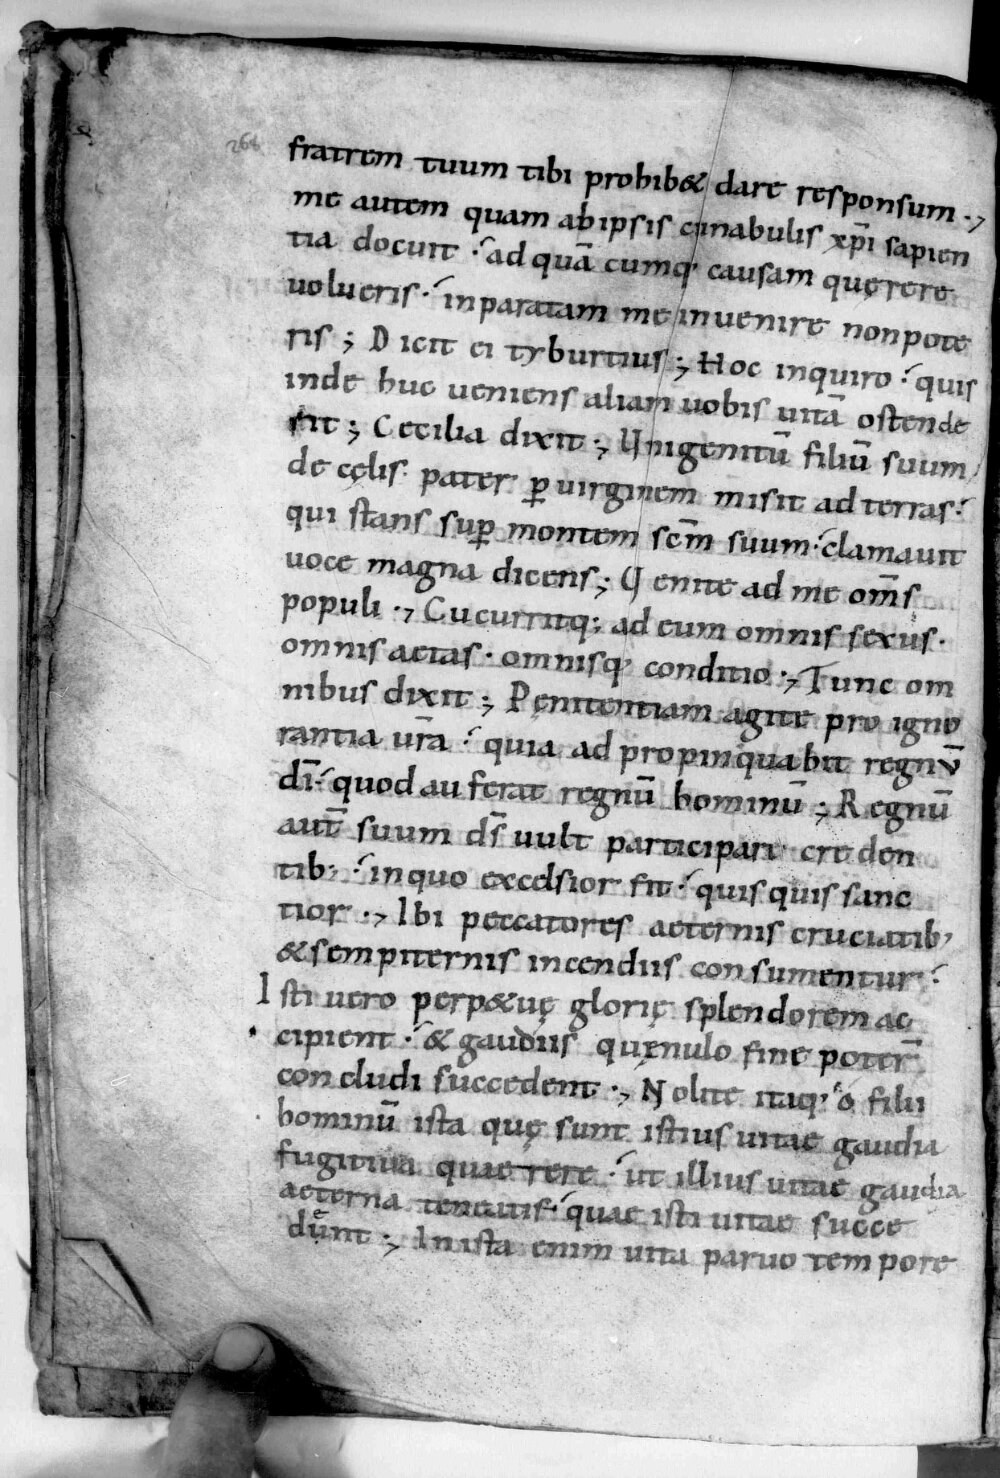 268
fratrem tuum tibi prohib& dare responsum .,
me autem quam ab ipsis cunabulis xp̄i sapien
tia docuit .' ad quā cumq; causam quęrere
volueris .' inparatam me invenire non pote
ris ; Dicit ei tyburtius ; Hoc inquiro .' quis
inde huc veniens aliam vobis vitā ostende
rit ; Cecilia dixit ; Unigenitū filiū suum
de cęlis . pater p̱ virginem misit ad terras .'
qui stans sup̱ montem sc̄m suum .' clamavit
voce magna dicens ; Venite ad me om̄s
populi ., Cucurritq; ad eum omnis sexus .
omnis aetas . omnisq; conditio ., Tunc om
nibus dixit ; Pęnitentiam agite pro igno
rantia vr̄a .' quia adpropinquabit regnū
dī .' quod auferat regnū hominū ; Regnū
aut̄ suum ds̄ vult participari creden
tib; .' in quo excelsior fit .' quisquis sanc
tior ., Ibi peccatores aeternis cruciatib;
& sempiternis incendiis consumentur .'
Isti vero perp&uę glorię splendorem ac
cipient .' & gaudiis quę nullo fine poter̄
concludi succedent ., Nolite itaq; o filii
hominū ista quę sunt istius vitae gaudia
fugitiva quaerere .' ut illius vitae gaudia
aeterna teneatis .' quae isti vitae succe
dunt ; In ista enim vita parvo tempore